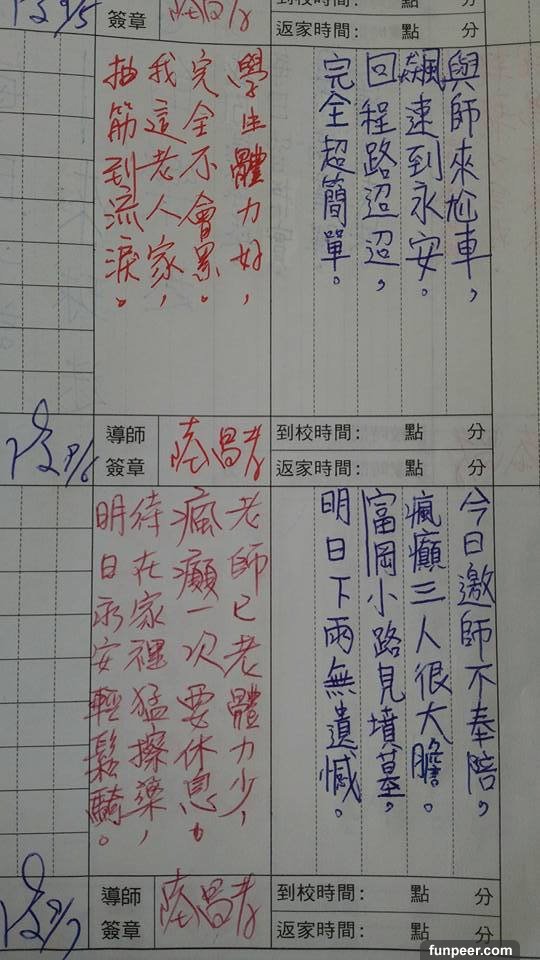 9/5
簽章
返家時間：　點　分
與師來尬車，
飆速到永安。
回程路迢迢，
完全超簡單。
學生體力好，
完全不會累。
我這老人家，
抽筋到流淚。
9/6
導師
簽章
到校時間：　點　分
返家時間：　點　分
今日邀師不奉陪，
瘋癲三人很大膽。
富岡小路見墳墓，
明日下雨無遺憾。
老師已老體力少，
瘋癲一次要休息。
待在家裡猛擦藥，
明日永安輕鬆騎。
9/7
導師
簽章
到校時間：　點　分
返家時間：　點　分
funpeer.com